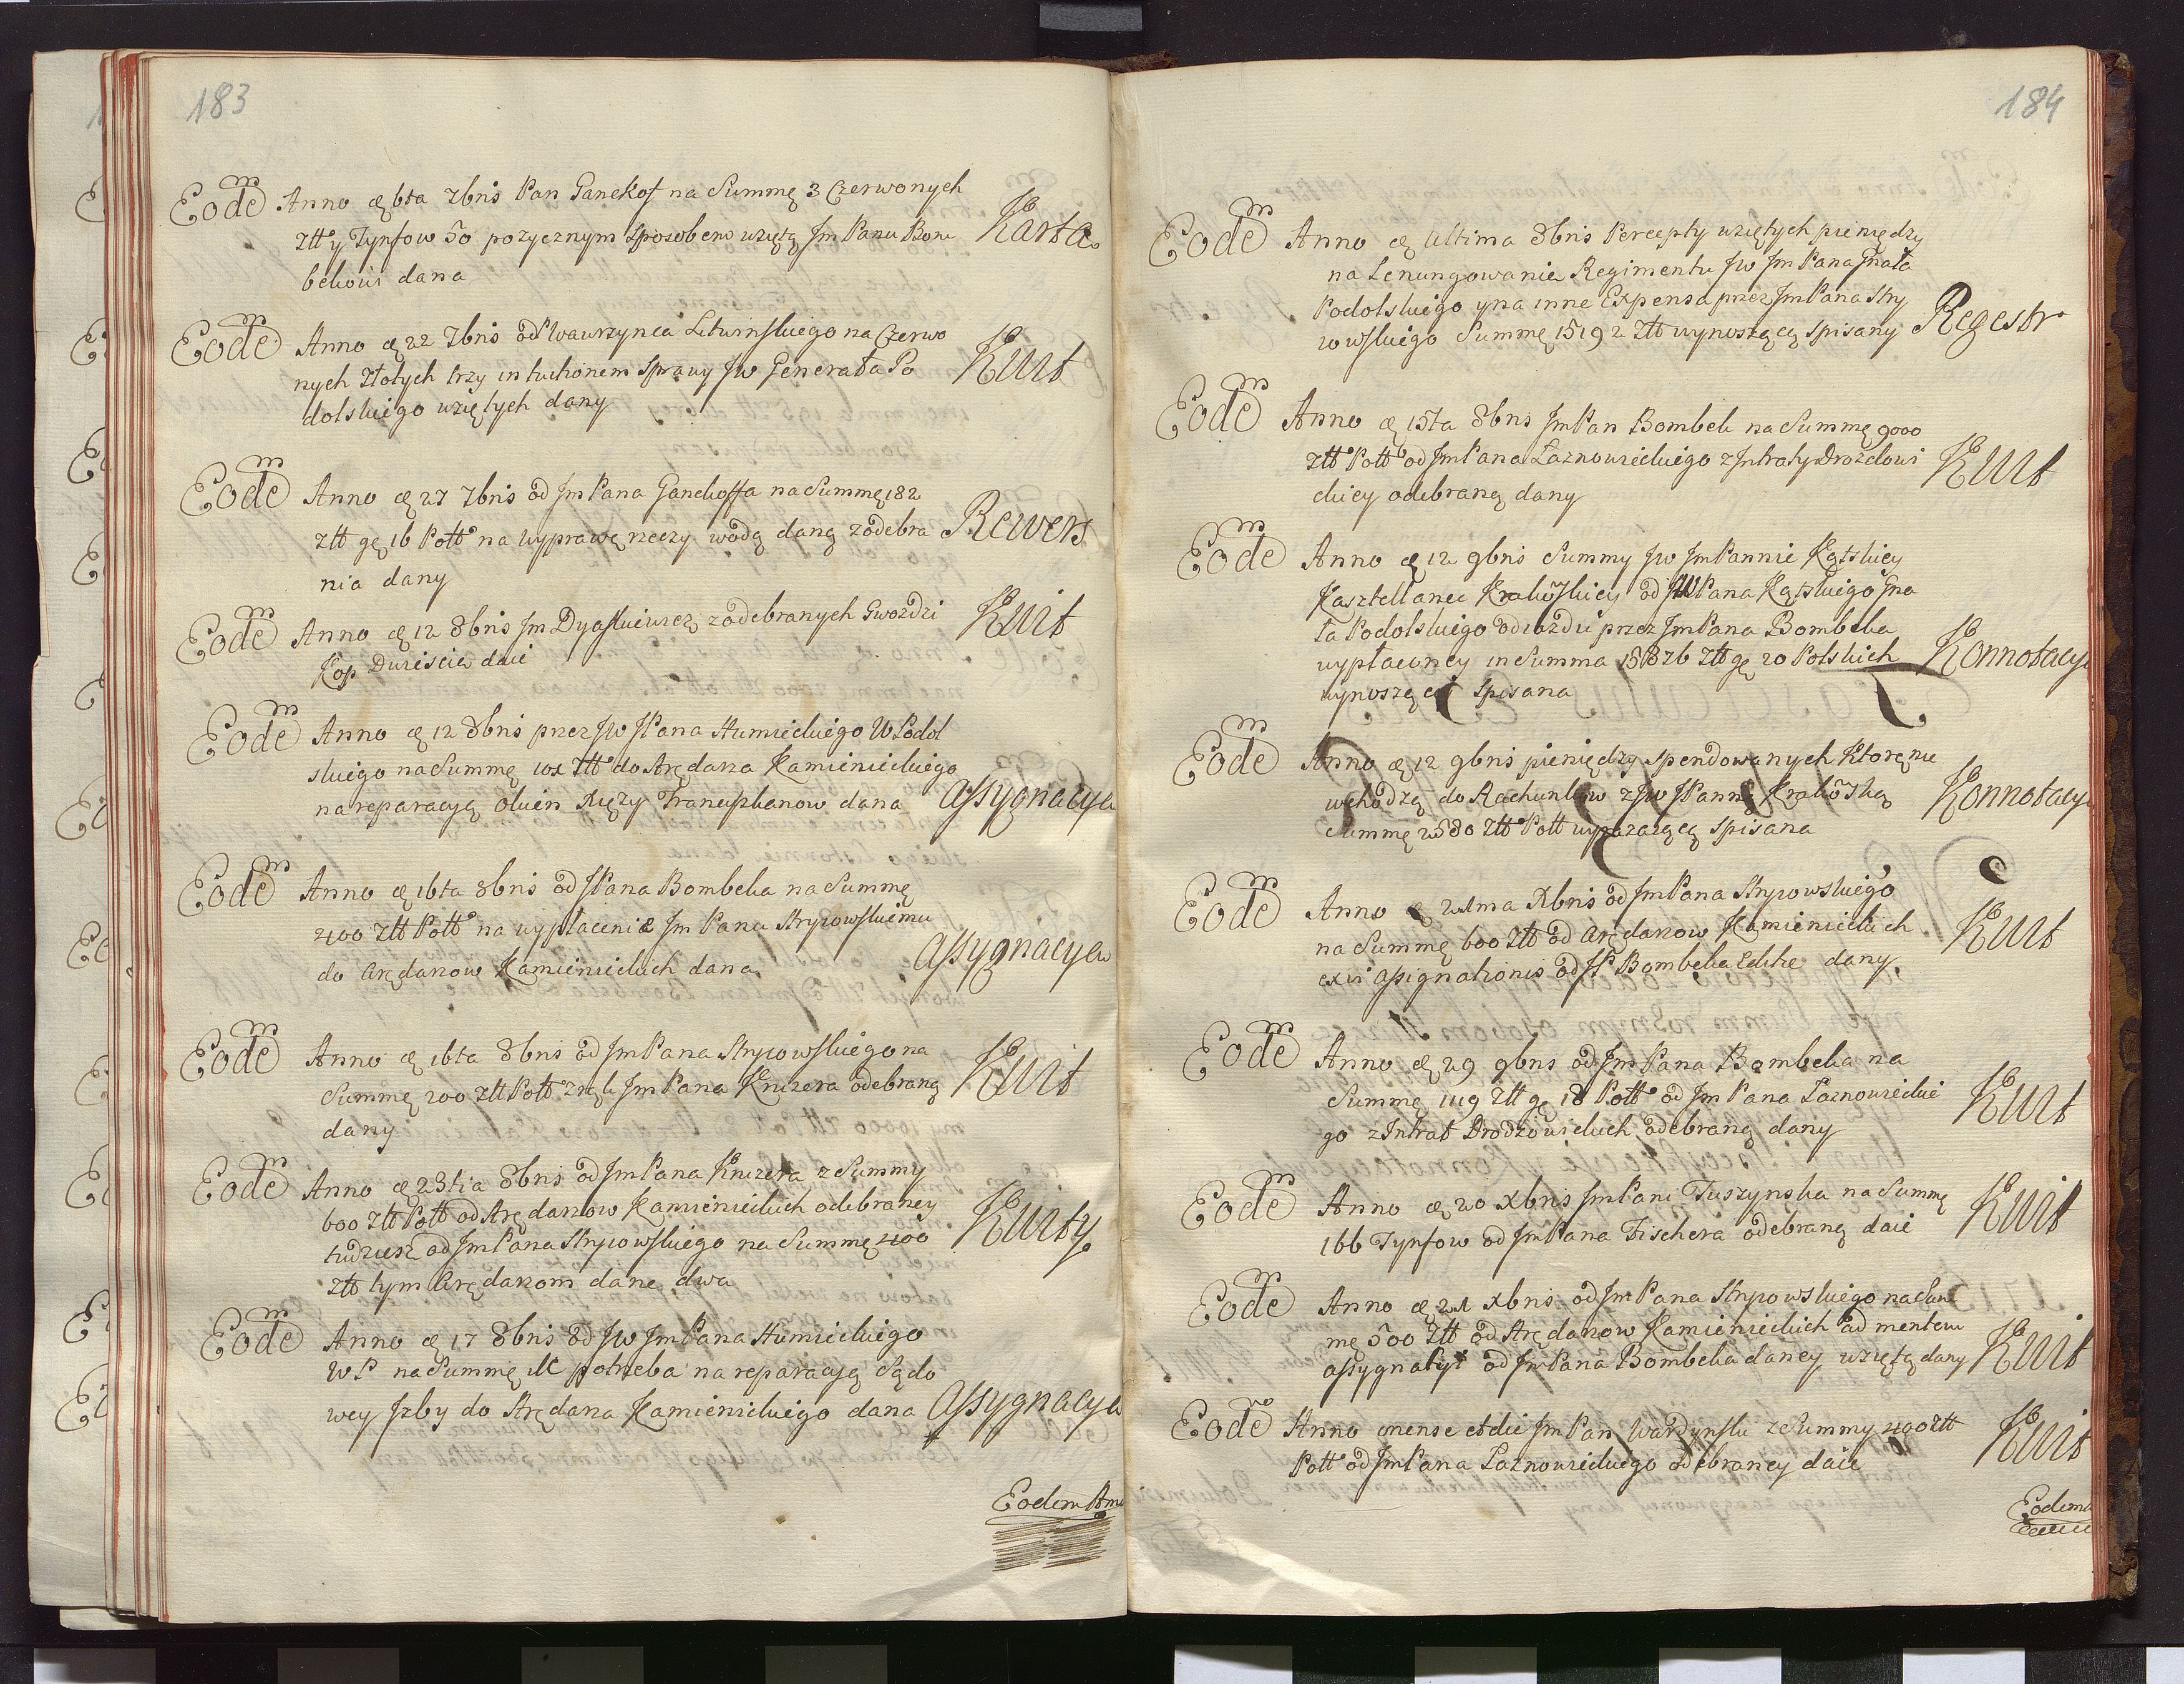 183
Eodem Anno æ 6ta 7bris Pan Ganekof na Summę 3 Czerwonych
Złł y Tynfow 50 pozycznym sposobem wziętą Jm Panu Bom
bekowi dana
Karta
Eodem Anno æ 22 7bris od Wawrzynca Litwinskiego na Czerwo
nych Złotych trzy intuitionem Sprawy Jw Generała Po
dolskiego wziętych dany
Kwit
Eodem Anno æ 27 7bris od Jm Pana Ganekoffa na Summę 182
Złł gę 16 Poll na wyprawę rzeczy wodą daną zodebra
nia dany
Rewers
Eodem Anno æ 12 8bris Jm Dyaskiewicz zodebranych Gwozdzi
Kop Dwiescie daie
Kwit
Eodem Anno æ 12 8bris przez Jw JPana Humieckiego W Podol
skiego na Summę Złł do Arędarza Kamienieckiego
na reparacyą okien Xięzy Franciszkanow dana
Assygnacya
Eodem Anno æ 16ta 8bris od JPana Bombeka na Summę
400 Złł Poll na wypłacenie Jm Panu Stryiowskiemu
do Arędarzow Kamienieckich dana
Assygnacya
Eodem Anno æ 16ta 8bris od Jm Pana Stryiowskiego na
Summę 200 Złł Poll z rąk Jm Pana Knizera odebraną
dany
Kwit
Eodem Anno æ 23tia 8bris od Jm Pana Knizera z Summy
600 Złł Poll od Arędarzow Kamienieckich odebraney
tudziesz od Jm Pana Stryiowskiego na Summę 400
Złł tym Arędarzom dane dwa
Kwity
Eodem Anno æ 17 8bris od Jw Jm Pana Humieckiego
W P na Summę potrzeba na reparacyą Sądo
wey Jzby do Arędarza Kamienieckiego dana
Assygnacya
Eodem Anno
184
Eodem Anno æ Ultima 8bris Percepty wziętych pieniędzy
na Lenungowanie Regimentu Jw Jm Pana Gnała
Podolskiego y na inne Expensa przez Jm Pana Stry
iowskiego Summę 15192 Złł wynoszącą spisany
Regestr
Eodem Anno æ 15ta 8bris Jm Pan Bombek na Summę 9000
Złł Poll od Jm Pana Laznowieckiego z Jntraty Drozdowi
ckiey odebraną dany
Kwit
Eodem Anno æ 12 9bris Summy Jw Jm Pannie Kątskiey
Kasztellance Krakoskiey od JW Pana Kątskiego Gna
ła Podolskiego odiazdu przez Jm Pana Bombeka
wypłaconey in Summa Złł gę 20 Polskich
wynoszącey spisana
Konnotacya
Eodem Anno æ 12 9bris pieniędzy spendowanych ktore nie
wchodzą do Rachunkow z Jw JPanną Krakoską
Summę Złł Poll wyrazaiącą spisana
Konnotacya
Eodem Anno æ 21ma Xbris od Jm Pana Stryiowskiego
na Summę 600 Złł od Arędarzow Kamienieckich
ex vi assignationis od JP Bombeka Editæ dany
Kwit
Eodem Anno æ 29 9bris od Jm Pana Bombeka na
Summę Złł gę 18 Poll od Jm Pana Laznowieckie
go z Jntrat Drodzowieckich odebraną dany
Kwit
Eodem Anno æ 20 Xbris Jm Pani Tuszynska na Summę
166 Tynfow od Jm Pana Fischera odebraną daie
Kwit
Eodem Anno æ 21 Xbris od Jm Pana Stryiowskiego na Sum
mę 500 Złł od Arędarzow Kamienieckich ad mentem
assygnatyi od Jm Pana Bombeka daney wziętą dany
Kwit
Eodem Anno mense et die Jm Pan Wardynski z Summy 400 Złł
Poll od Jm Pana Laznowieckiego odebraney daie
Kwit
Eodem